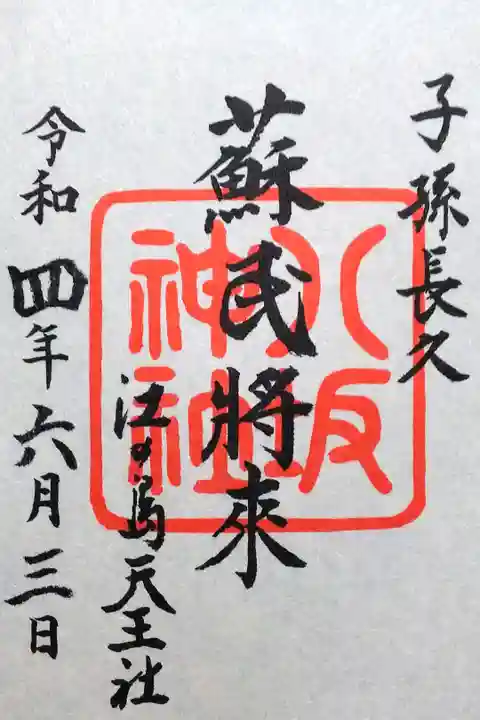 子孫長久
蘇民將來
八坂
神社
江の島天王社
令和四年六月三日